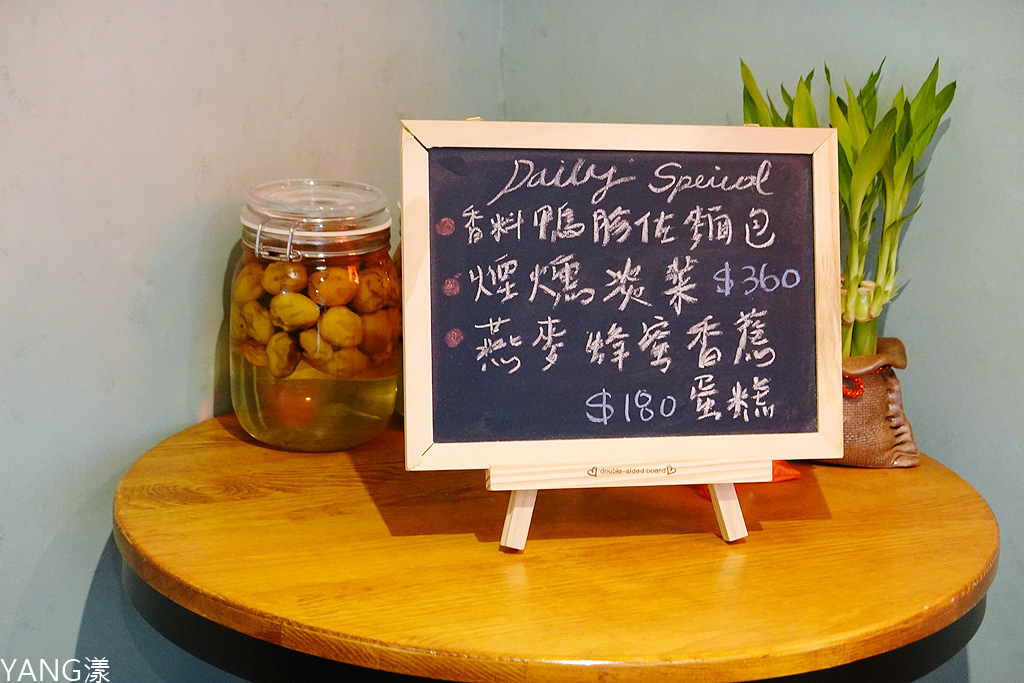 Daily Special
香料鴨胗佐麵包
煙燻淡菜 $360
燕麥蜂蜜香蕉
$180 蛋糕
double-sided board
YANG漾